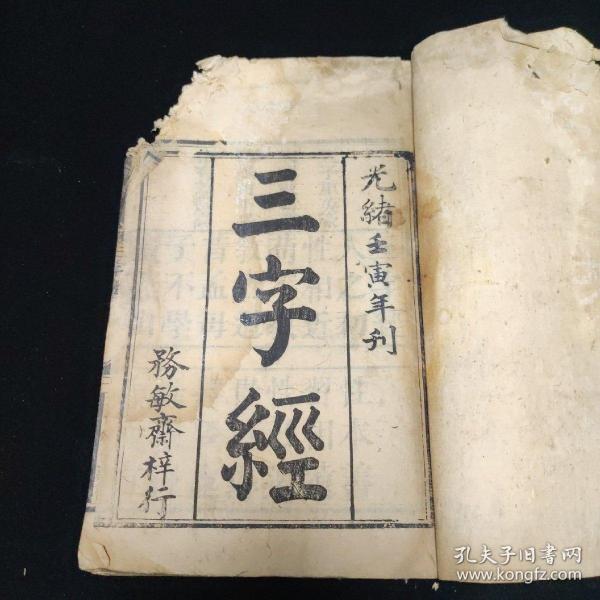 光緒壬寅年刊
三字經
務敏齋梓行
孔夫子旧书网
www.kongfz.com